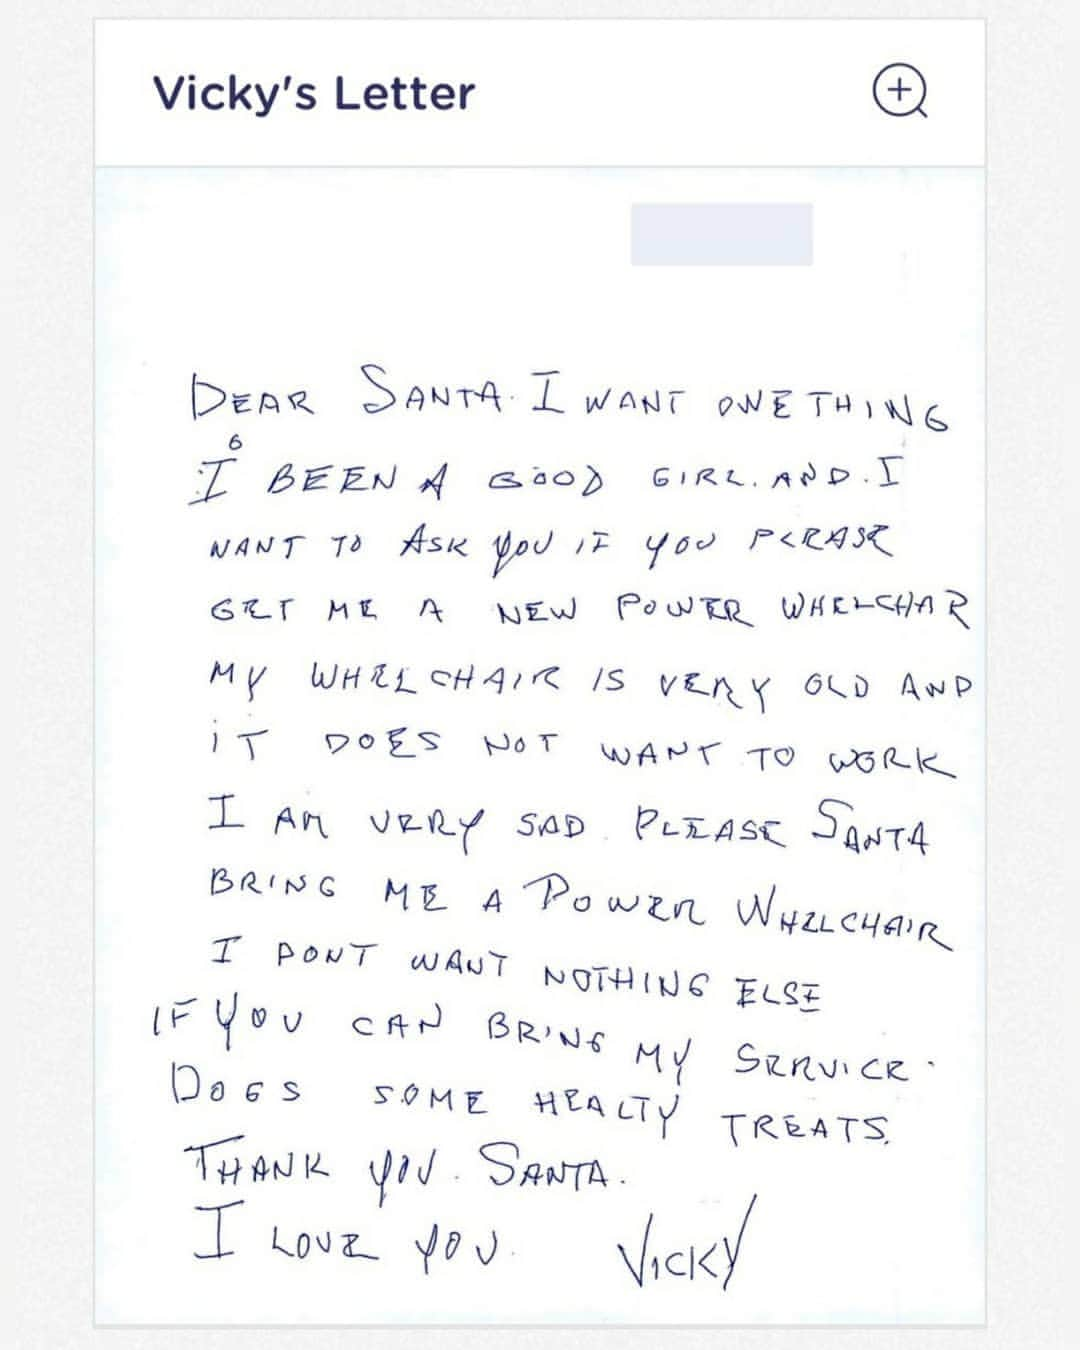 Vicky's Letter
DEAR SANTA. I WANT ONE THING
6
I BEEN A GOOD GIRL. AND. I
WANT TO ASK YOU IF YOU PLEASE
GET ME A NEW POWER WHELCHAR
MY WHELCHAIR IS VERY OLD AND
iT DOES NOT WANT TO WORK
I AM VERY SAD. PLEASE SANTA
BRING ME A POWER WHELCHAIR
I DONT WANT NOTHING ELSE
IF YOU CAN BRING MY SERVICE.
DOGS SOME HEALTY TREATS.
THANK YOU. SANTA.
I LOVE YOU. VICKY